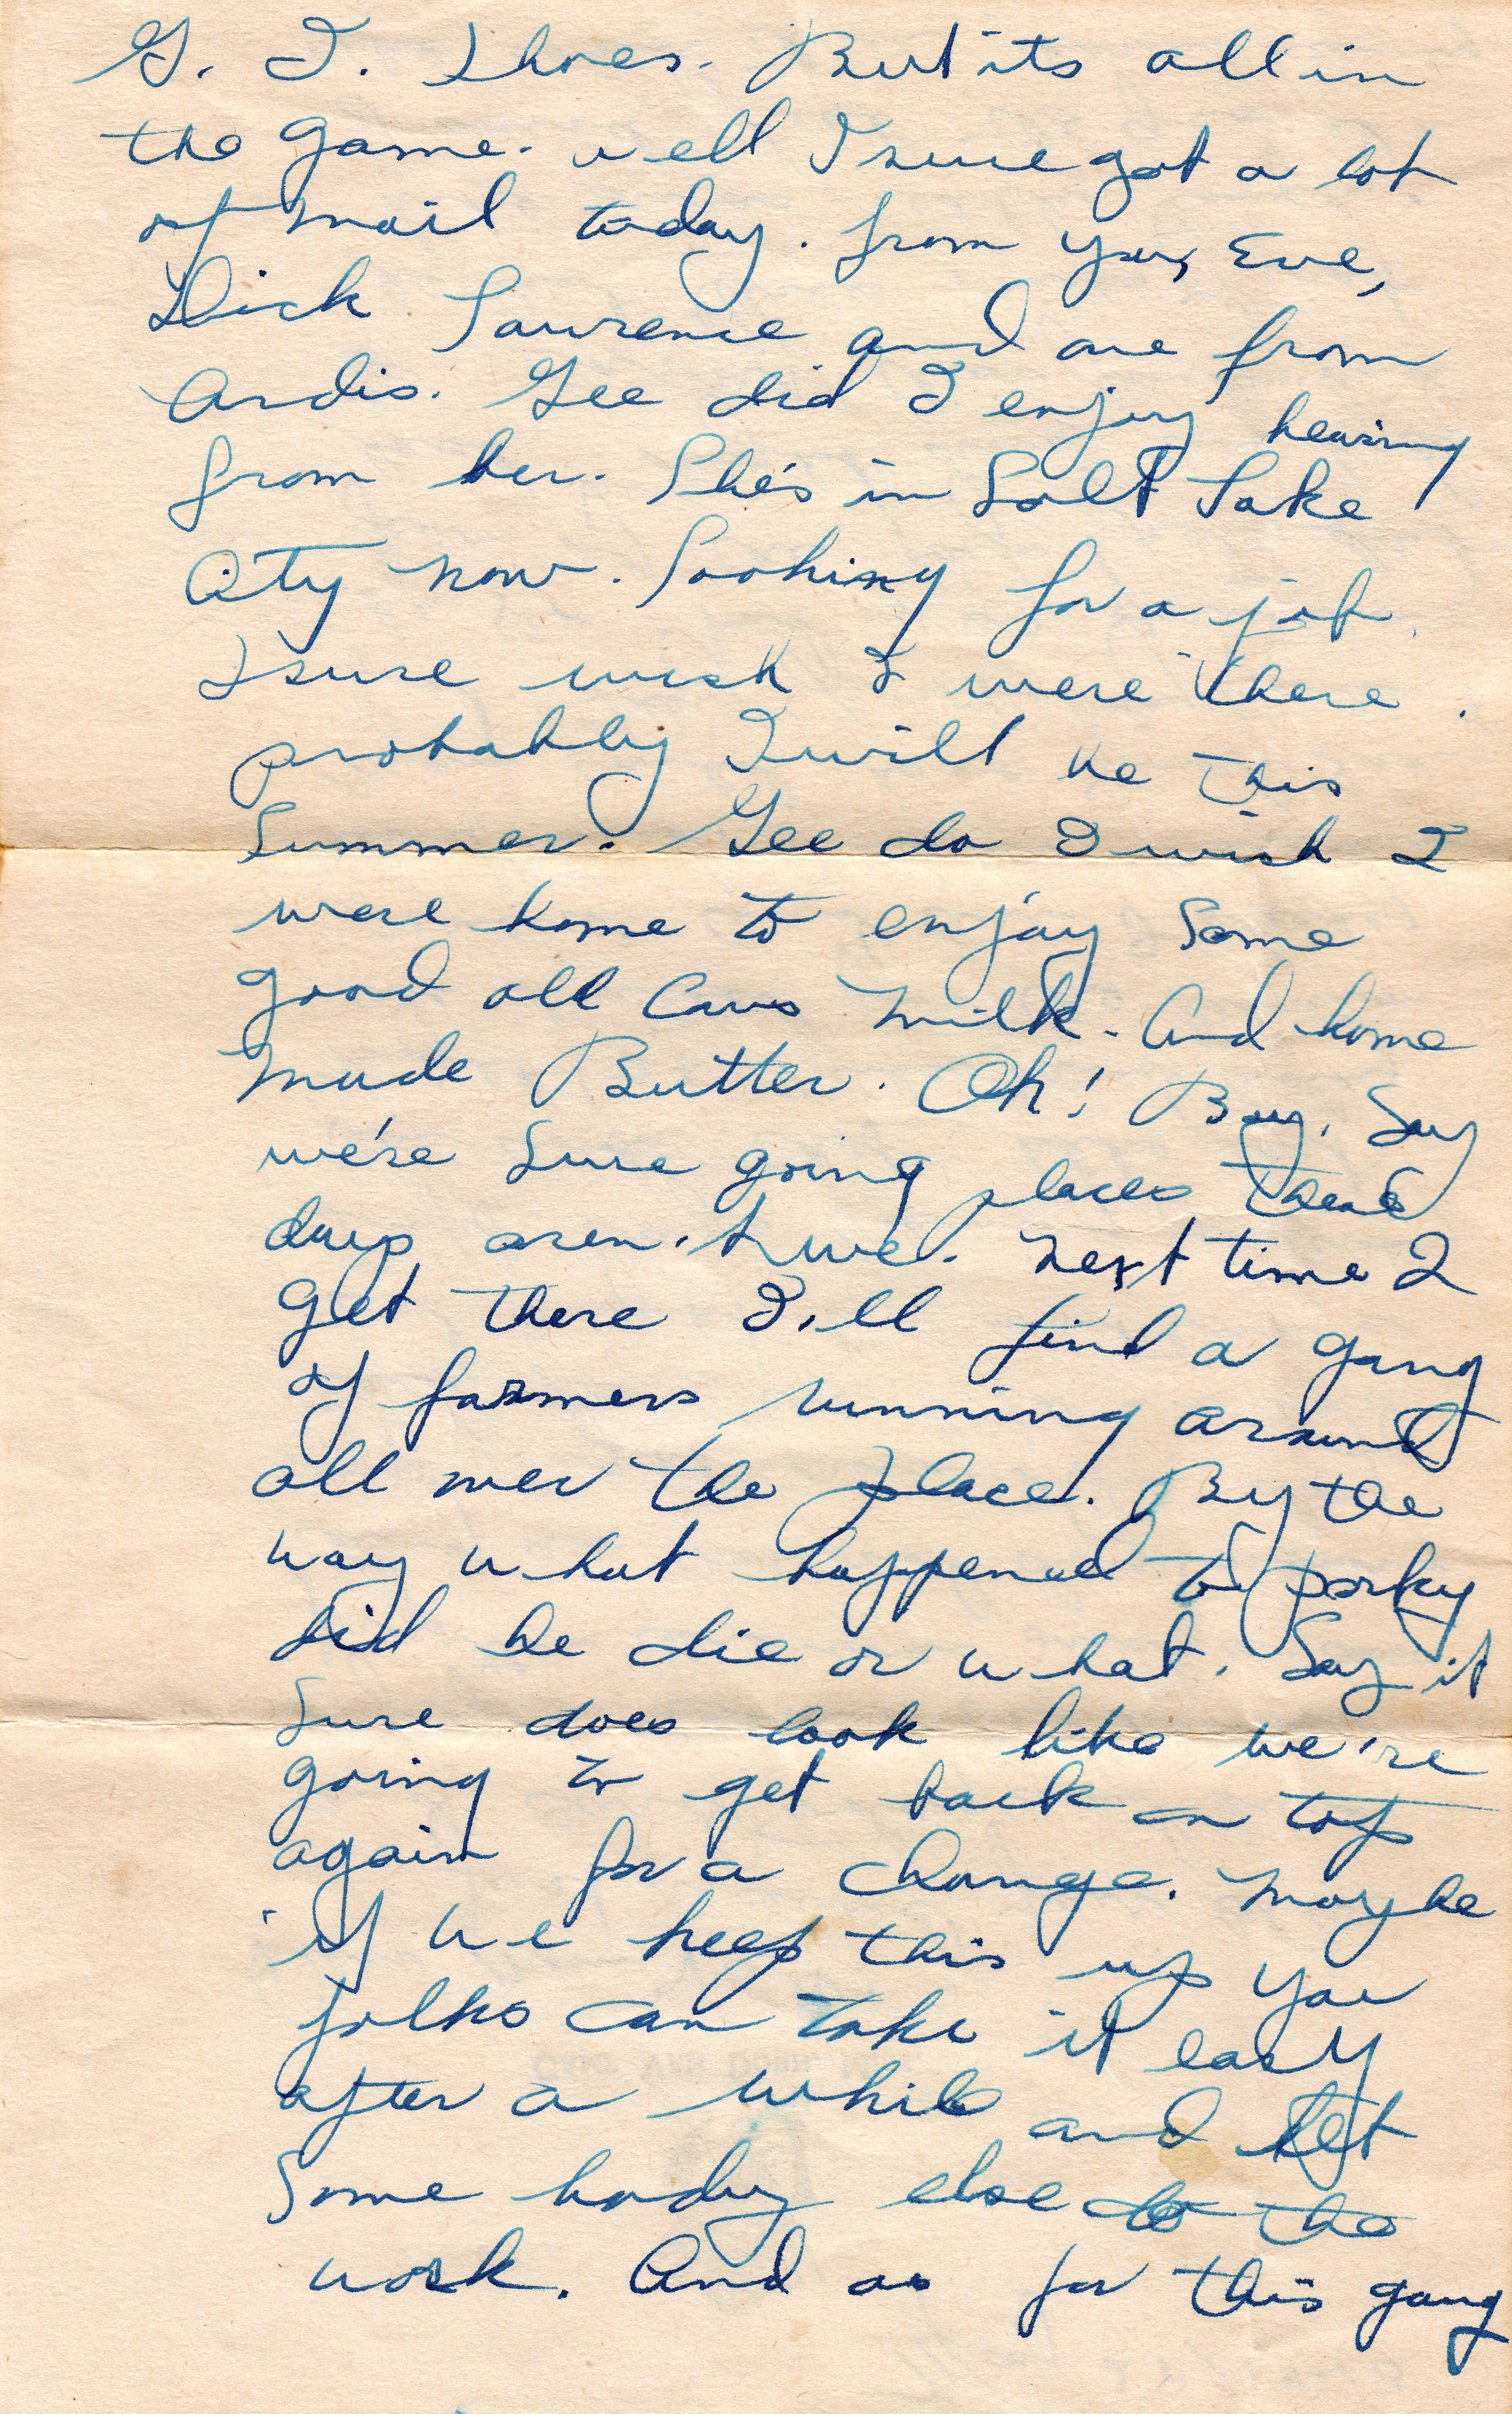 G. I. Shoes. But its all in
the game. well I sure got a lot
of mail today. from you, Eve,
Dick Lawrence and one from
Ardis. Gee did I enjoy hearing
from her. She's in Salt Lake
City now. Looking for a job.
I sure wish I were there.
probably I will be this
Summer. Gee do I wish I
were home to enjoy some
good old Cows milk. And home
made Butter. Oh! Boy. Say
we're sure going places these
days aren't we. Next time I
get there I'll find a gang
of farmers running around
all over the place. By the
way what happened to porky
did he die or what. Say it
sure does look like we're
going to get back on top
again for a change. Maybe
if we keep this up you
folks can take it easy
after a while and let
Some body else do the
work. And as for this gang